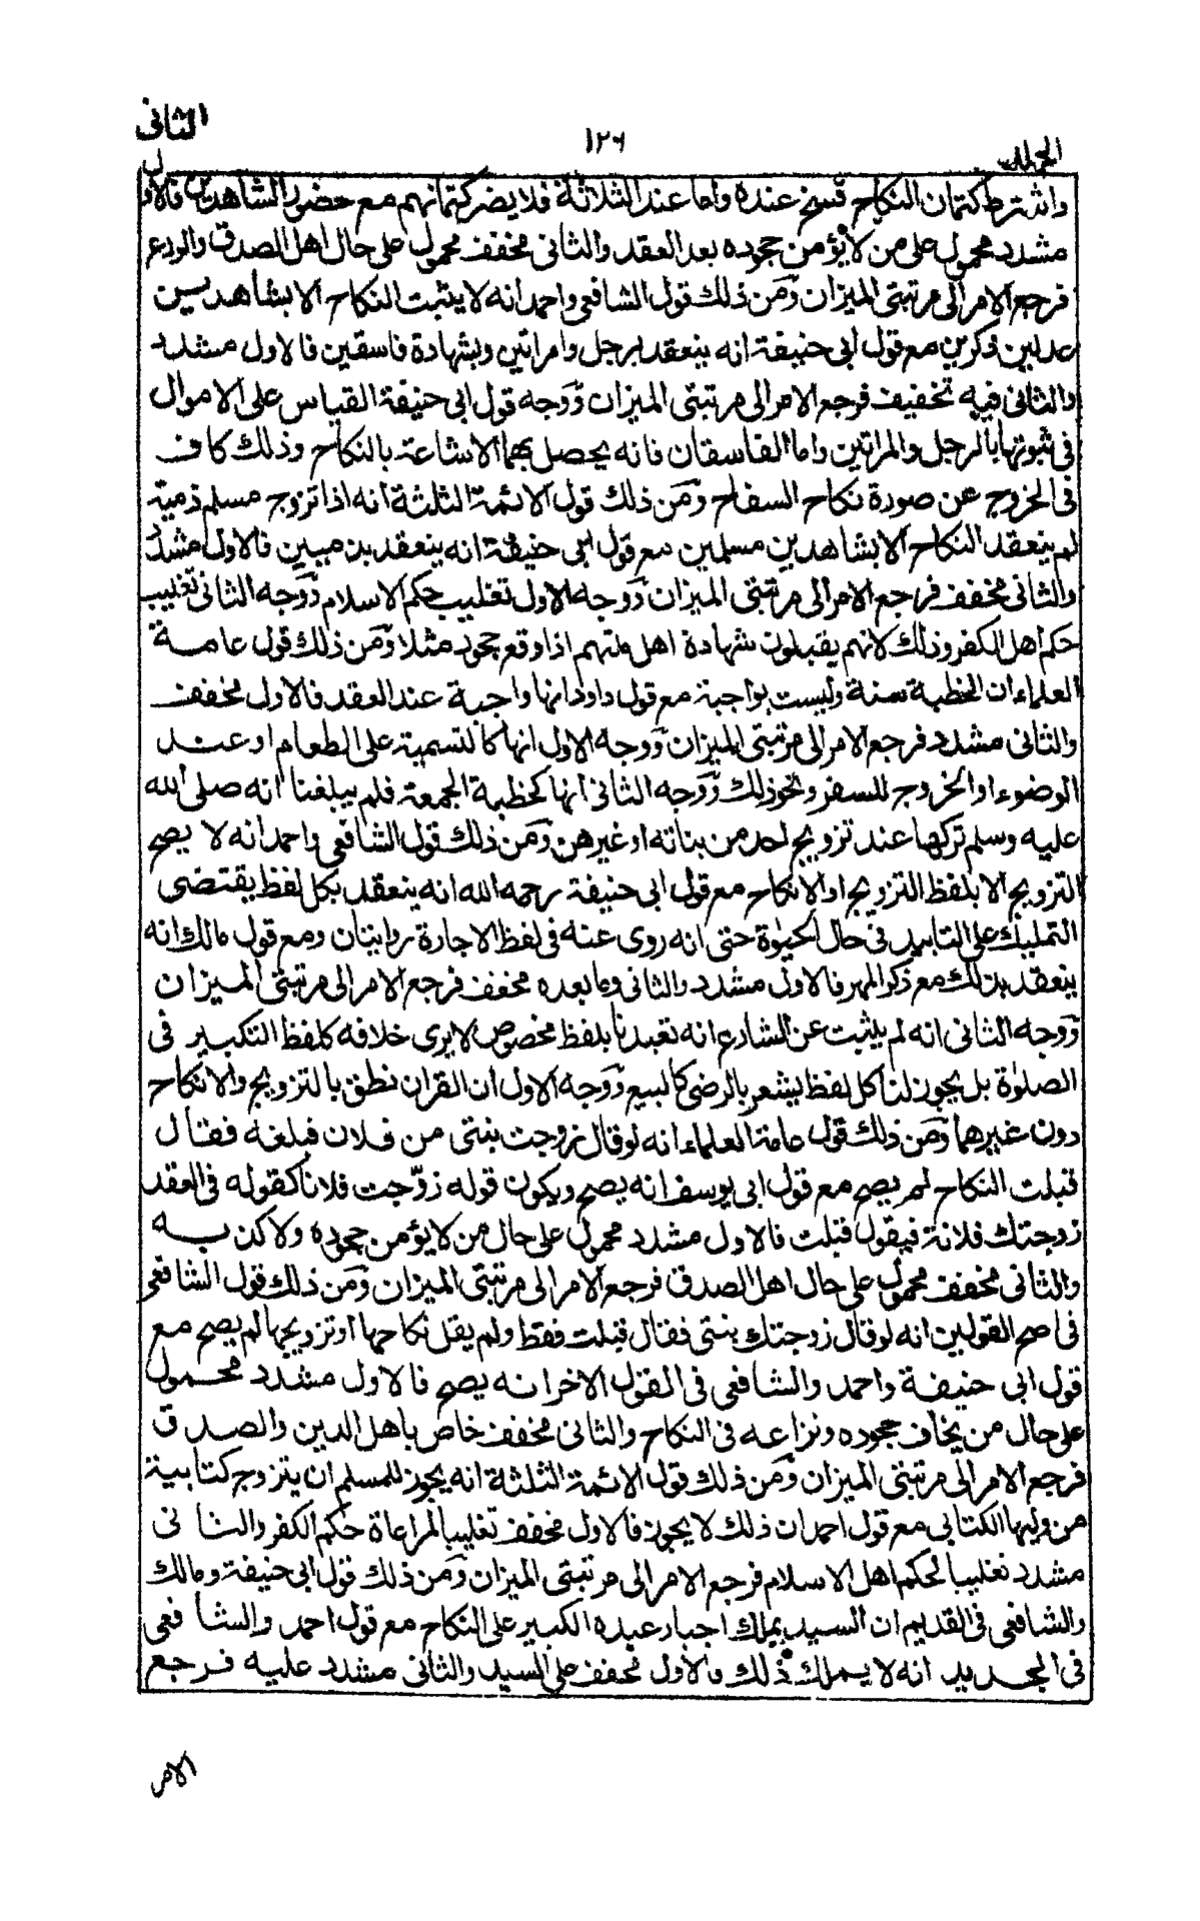 الثانى
١٢٦
المجلد
واشترط كتمان النكاح فسخ عنده واما عند الثلاثة فلا يضر كتمانهم مع حضور الشاهدين فالاول
مشدد محمول على من لا يؤمن جحوده بعد العقد والثانى مخفف محمول على حال اهل الصدق والورع
فرجع الامر الى مرتبتى الميزان ومن ذلك قول الشافعى واحمد انه لا يثبت النكاح الا بشاهدين
عدلين ذكرين مع قول ابى حنيفة انه ينعقد برجل وامراتين وبشهادة فاسقين فالاول مشدد
والثانى فيه تخفيف فرجع الامر الى مرتبتى الميزان ووجه قول ابى حنيفة القياس على الاموال
فى ثبوتها بالرجل والمراتين واما الفاسقان فانه يحصل بهما الاشاعة بالنكاح وذلك كاف
فى الخروج عن صورة نكاح السفاح ومن ذلك قول الائمة الثلثة انه اذا تزوج مسلم ذمية
لم ينعقد النكاح الا بشاهدين مسلمين مع قول ابى حنيفة انه ينعقد بذميين فالاول مشدد
والثانى مخفف فرجع الامر الى مرتبتى الميزان ووجه الاول تغليب حكم الاسلام ووجه الثانى تغليب
حكم اهل الكفر وذلك لانهم يقبلون شهادة اهل ملتهم اذا وقع جحود مثلا ومن ذلك قول عامة
العلماء ان الخطبة سنة وليست بواجبة مع قول داود انها واجبة عند العقد فالاول مخفف
والثانى مشدد فرجع الامر الى مرتبتى الميزان ووجه الاول انها كالتسمية على الطعام او عند
الوضوء او الخروج للسفر ونحو ذلك ووجه الثانى انها كخطبة الجمعة فلم يبلغنا انه صلى الله
عليه وسلم تركها عند تزويج احد من بناته او غيرهن ومن ذلك قول الشافعى واحمد انه لا يصح
التزويج الا بلفظ التزويج او الانكاح مع قول ابى حنيفة رحمه الله انه ينعقد بكل لفظ يقتضى
التمليك على التابيد فى حال الحيٰوة حتى انه روى عنه فى لفظ الاجارة روايتان ومع قول مالك انه
ينعقد بذلك مع ذكر المهر فالاول مشدد والثانى وما بعده مخفف فرجع الامر الى مرتبتى الميزان
ووجه الثانى انه لم يثبت عن الشارع انه تعبدنا بلفظ مخصوص لا يرى خلافه كلفظ التكبير فى
الصلوٰة بل يجوز لنا كل لفظ يشعر بالرضى كالبيع ووجه الاول ان القران نطق بالتزويج والانكاح
دون غيرهما ومن ذلك قول عامة العلماء انه لو قال زوجت بنتى من فلان فبلغه فقال
قبلت النكاح لم يصح مع قول ابى يوسف انه يصح ويكون قوله زوّجت فلانا كقوله فى العقد
زوجتك فلانة فيقول قبلت فالاول مشدد محمول على حال من لا يؤمن جحوده ولا كذبه
والثانى مخفف محمول على حال اهل الصدق فرجع الامر الى مرتبتى الميزان ومن ذلك قول الشافعى
فى اصح القولين انه لو قال زوجتك بنتى فقال قبلت فقط ولم يقل نكاحها او تزويجها لم يصح مع
قول ابى حنيفة واحمد والشافعى فى القول الاخر انه يصح فالاول مشدد محمول
على حال من يخاف جحوده ونزاعه فى النكاح والثانى مخفف خاص باهل الدين والصدق
فرجع الامر الى مرتبتى الميزان ومن ذلك قول الائمة الثلثة انه يجوز للمسلم ان يتزوج كتابية
من وليها الكتابى مع قول احمد ان ذلك لا يجوز فالاول مخفف تغليبا لمراعاة حكم الكفر والثانى
مشدد تغليبا لحكم اهل الاسلام فرجع الامر الى مرتبتى الميزان ومن ذلك قول ابى حنيفة ومالك
والشافعى فى القديم ان السيد يملك اجبار عبده الكبير على النكاح مع قول احمد والشافعى
فى الجديد انه لا يملك ذلك فالاول مخفف على السيد والثانى مشدد عليه فرجع
الامر